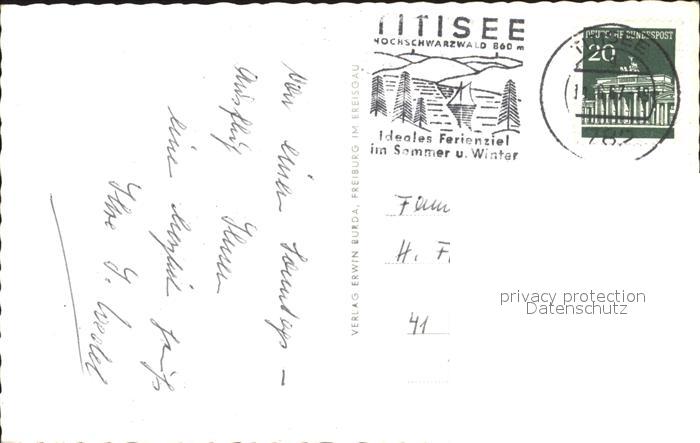 Von einem Sonntags-
Ausflug Ihnen
eine
Ihre
VERLAG ERWIN BURDA, FREIBURG IM BREISGAU
TITISEE
HOCHSCHWARZWALD 860 m
Ideales Ferienziel
im Sommer u. Winter
DEUTSCHE BUNDESPOST
20
TITISEE
782
Fam
H. F
41
privacy protection
Datenschutz